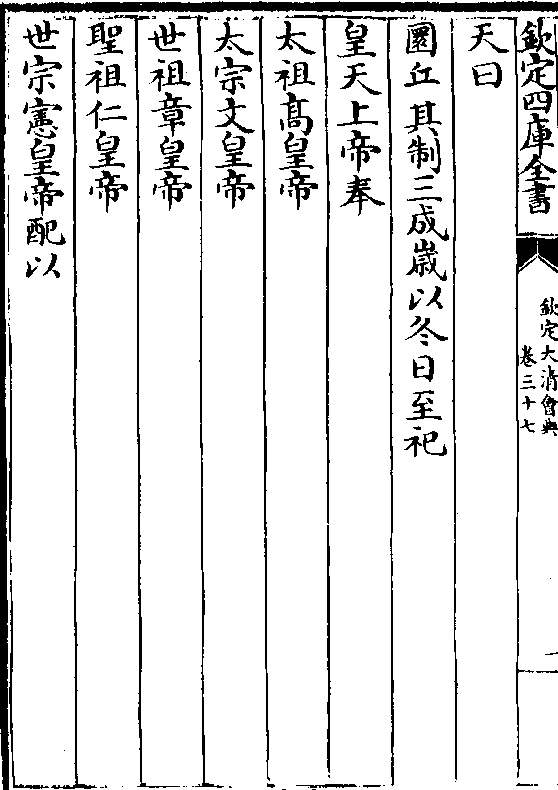 欽定四庫全書
欽定大清會典
卷三十七
天曰
圜丘其制三成歲以冬日至祀
皇天上帝奉
太祖髙皇帝
太宗文皇帝
世祖章皇帝
聖祖仁皇帝
世宗憲皇帝配以